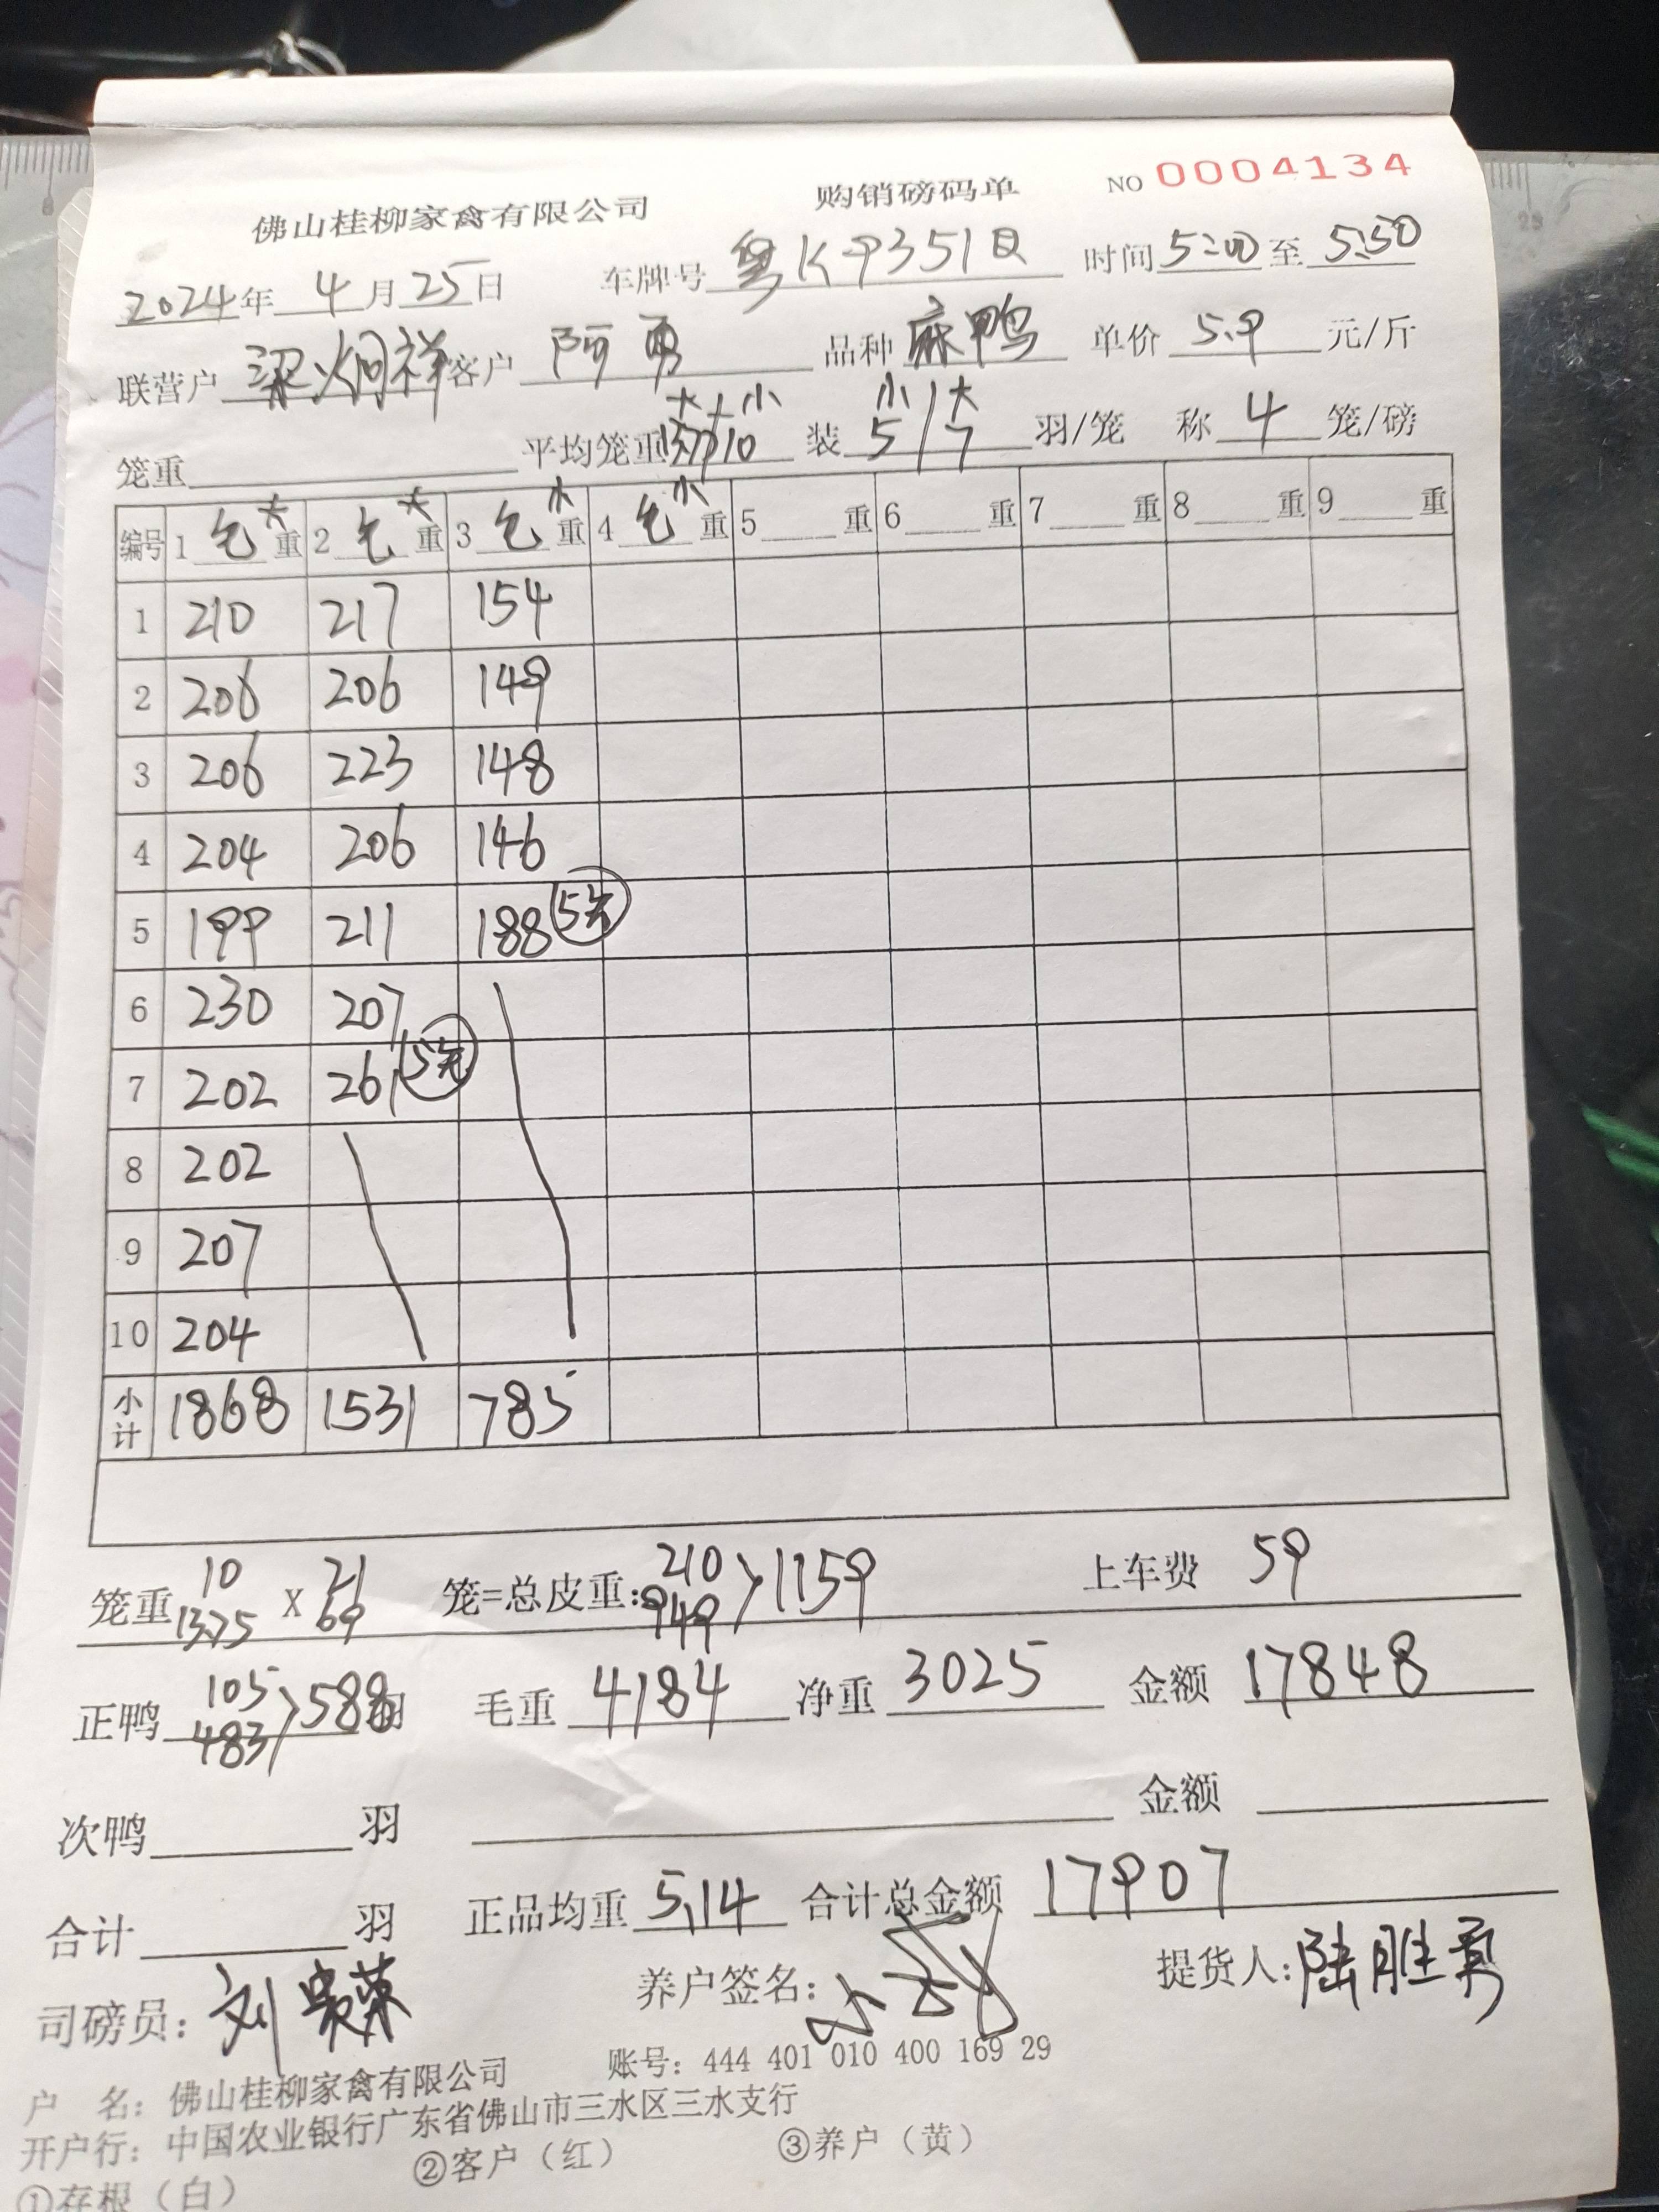 佛山桂柳家禽有限公司 购销磅码单 NO 0004134
2024年 4月25日 车牌号 粤K9351Q 时间 5:00 至 5:50
联营户 梁炯祥 客户 阿勇 品种 麻鸭 单价 5.9 元/斤
大 小 小 大
笼重 平均笼重 13.75/10 装 5/7 羽/笼 称 4 笼/磅
大 大 小 小
编号 1 毛 重 2 毛 重 3 毛 重 4 毛 重 5 重 6 重 7 重 8 重 9 重
1 210 217 154
2 206 206 149
3 206 223 148
4 204 206 146
5 199 211 188 5笼
6 230 207
7 202 261 5笼
8 202
9 207
10 204
小计 1868 1531 785
笼重 10 X 21 笼=总皮重: 210 1159 上车费 59
13.75 69 949
正鸭 105 588 羽 毛重 4184 净重 3025 金额 17848
483
次鸭 羽 金额
合计 羽 正品均重 5.14 合计总金额 17907
司磅员: 刘 荣 养户签名: 提货人: 陆胜勇
户 名: 佛山桂柳家禽有限公司 账号: 444 401 010 400 169 29
开户行: 中国农业银行广东省佛山市三水区三水支行
①存根(白) ②客户(红) ③养户(黄)